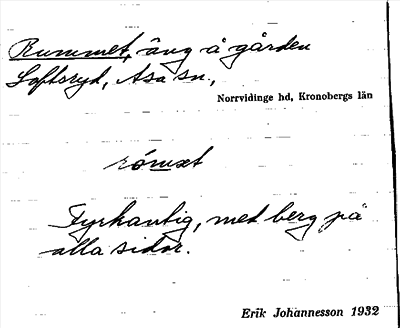 Rummet, äng å gården
Loftsryd, Asa sn,
Norrvidinge hd, Kronobergs län
rómət
Fyrkantig, med berg på
alla sidor.
Erik Johannesson 1932